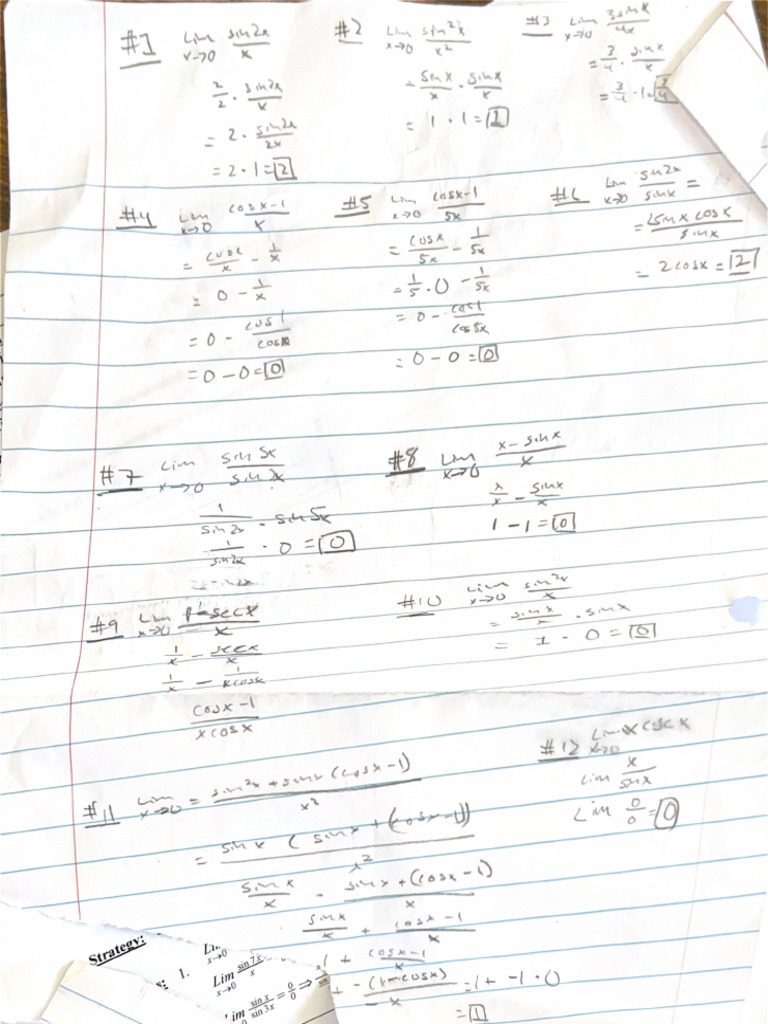 #1 Lim x→0 sin2x/x
2/2 · sin2x/x
= 2 · sin2x/2x
= 2 · 1 = 2
#2 Lim x→0 sin²x/x²
= sinx/x · sinx/x
= 1 · 1 = 1
#3 Lim x→0 3sinx/4x
= 3/4 · sinx/x
= 3/4 · 1 = 3/4
#4 Lim x→0 cosx-1/x
= cosx/x - 1/x
= 0 - 1/x
= 0 - cos1/cosx
= 0 - 0 = 0
#5 Lim x→0 cosx-1/5x
= cosx/5x - 1/5x
= 1/5 · 0 - 1/5x
= 0 - cos1/cos5x
= 0 - 0 = 0
#6 Lim x→0 sin2x/sinx =
= 2sinx cosx/sinx
= 2cosx = 2
#7 Lim x→0 sin5x/sin2x
1/sin2x · sin5x
1/sin2x · 0 = 0
#8 Lim x→0 x-sinx/x
x/x - sinx/x
1 - 1 = 0
#9 Lim x→0 1-secx/x
1/x - secx/x
1/x - 1/xcosx
cosx-1/xcosx
#10 Lim x→0 sin²x/x
= sinx/x · sinx
= 1 · 0 = 0
#11 Lim x→0 = sin²x + sinx (cosx-1)/x²
= sinx (sinx + (cosx-1))/x²
sinx/x · sinx + (cosx-1)/x
sinx/x + cosx-1/x
1 + cosx-1/x
+ -(1-cosx)/-x = 1 + -1 · 0
= 1
#12 Lim x→0 x cscx
Lim x/sinx
Lim 0/0 = 0
Strategy:
1. x→0
Lim x→0 sin 7x/x
sin x/sin 3x = 0/0 ⇒